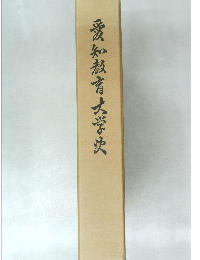 愛知教育大学史